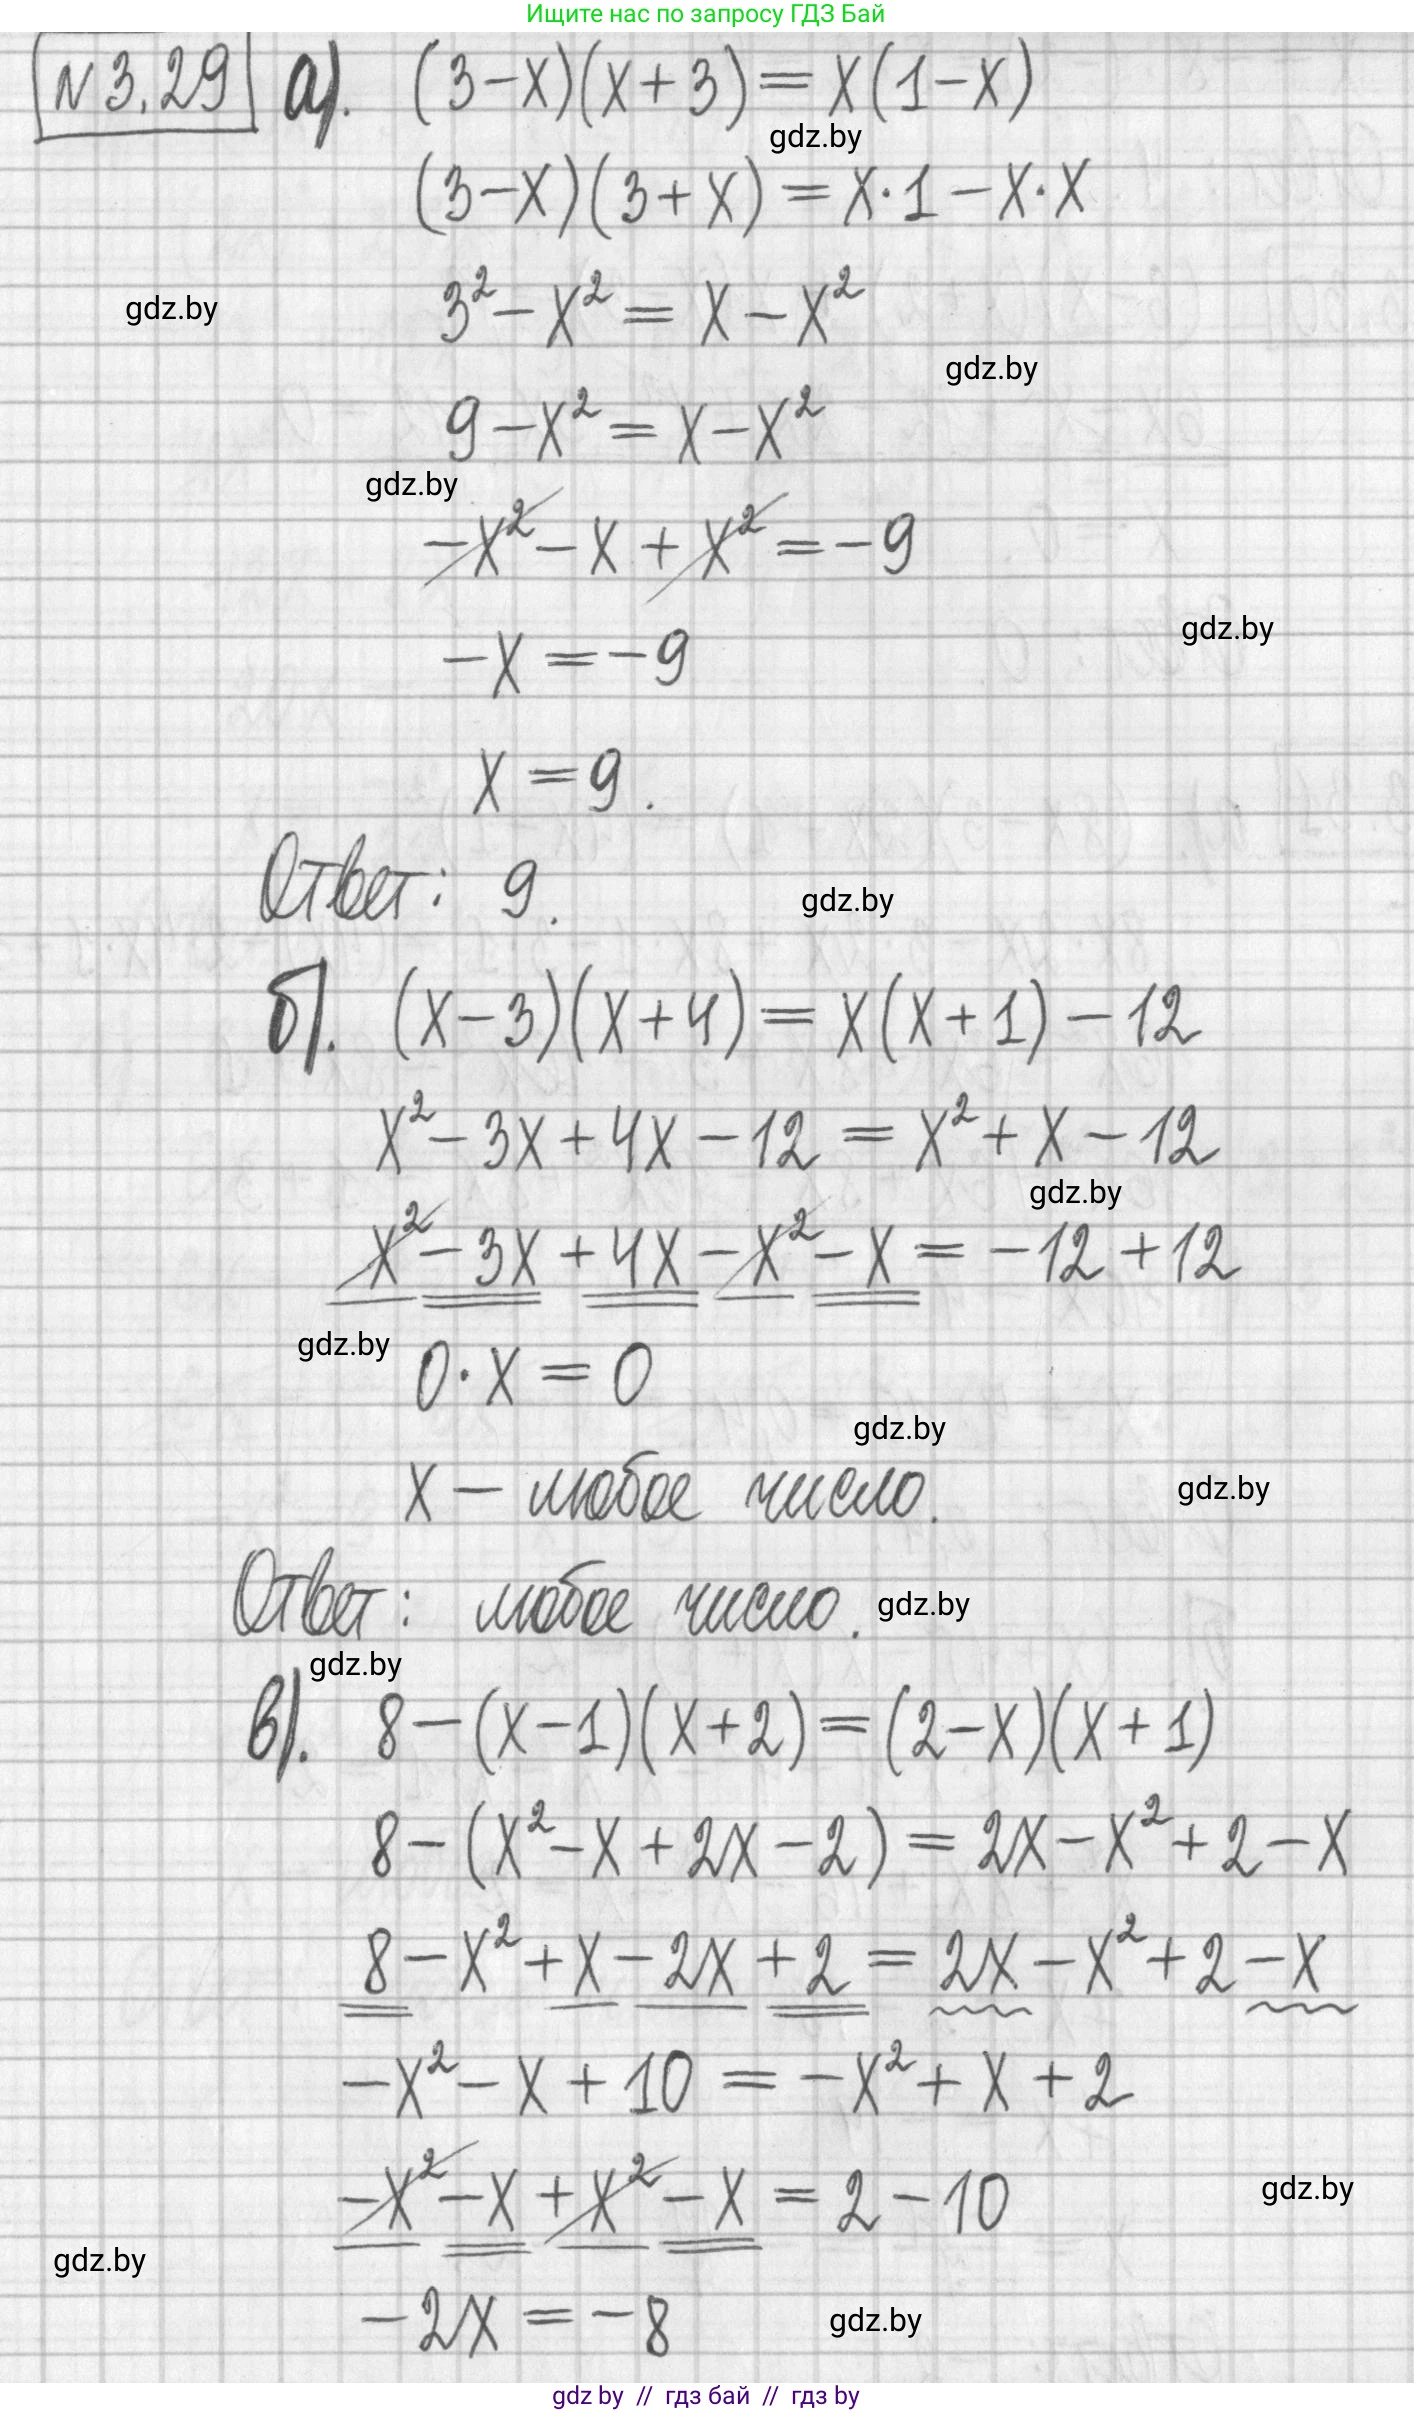 Ищите нас по запросу ГДЗ Бай
N 3.29 а). (3-x)(x+3)=x(1-x)
gdz.by
(3-x)(3+x)=x·1-x·x
gdz.by
3²-x²=x-x²
gdz.by
9-x²=x-x²
gdz.by
-x²-x+x²=-9
gdz.by
-x=-9
x=9.
Ответ: 9.
gdz.by
б). (x-3)(x+4)=x(x+1)-12
x²-3x+4x-12=x²+x-12
gdz.by
x²-3x+4x-x²-x=-12+12
gdz.by
0·x=0
gdz.by
x - любое число.
gdz.by
Ответ: любое число.
gdz.by
gdz.by
в). 8-(x-1)(x+2)=(2-x)(x+1)
8-(x²-x+2x-2)=2x-x²+2-x
8-x²+x-2x+2=2x-x²+2-x
-x²-x+10=-x²+x+2
-x²-x+x²-x=2-10
gdz.by
gdz.by
-2x=-8
gdz.by
gdz by // гдз бай // гдз by